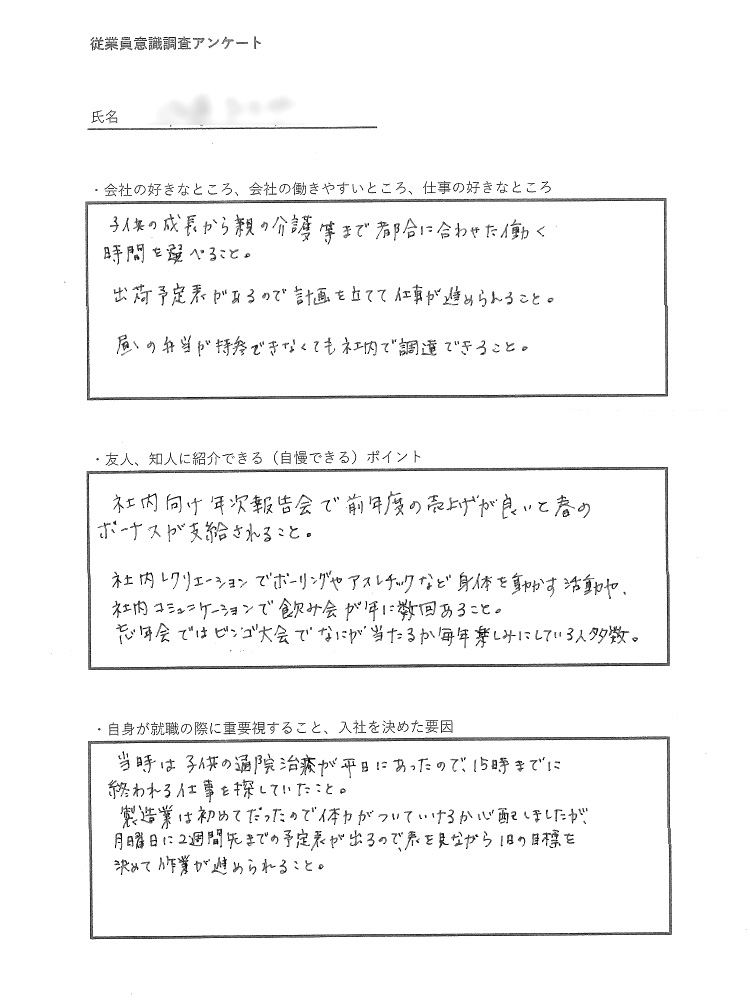 従業員意識調査アンケート
氏名
・会社の好きなところ、会社の働きやすいところ、仕事の好きなところ
子供の成長から親の介護等まで都合に合わせた働く
時間を選べること。
出荷予定表があるので計画を立てて仕事が進められること。
昼の弁当が持参できなくても社内で調達できること。
・友人、知人に紹介できる（自慢できる）ポイント
社内向け年次報告会で前年度の売上げが良いと春の
ボーナスが支給されること。
社内レクリエーションでボーリングやアスレチックなど身体を動かす活動や、
社内コミュニケーションで飲み会が年に数回あること。
忘年会ではビンゴ大会でなにが当たるか毎年楽しみにしている人多数。
・自身が就職の際に重要視すること、入社を決めた要因
当時は子供の通院治療が平日にあったので、15時までに
終われる仕事を探していたこと。
製造業は初めてだったので体力がついていけるか心配しましたが、
月曜日に2週間先までの予定表が出るので、表を見ながら1日の目標を
決めて作業が進められること。